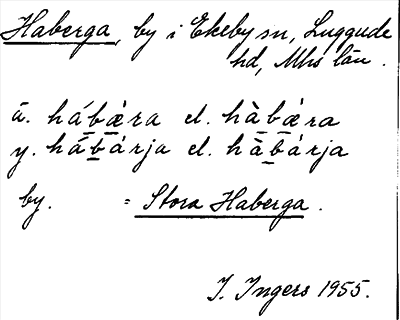 Haberga, by i Ekeby sn, Luggude
hd, Mhs län.
ä. há̱bǽra el. hàbǽra
y. há̱bárja el. hàbárja
by. = Stora Haberga.
I. Ingers 1955.